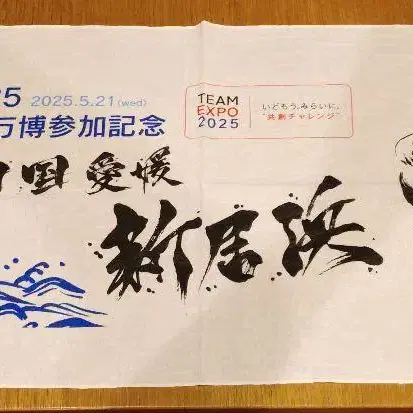 25 2025.5.21(wed)
万博参加記念
TEAM
EXPO
2025
いどもう、みらいに。
"共創チャレンジ"
国 愛媛
新居浜